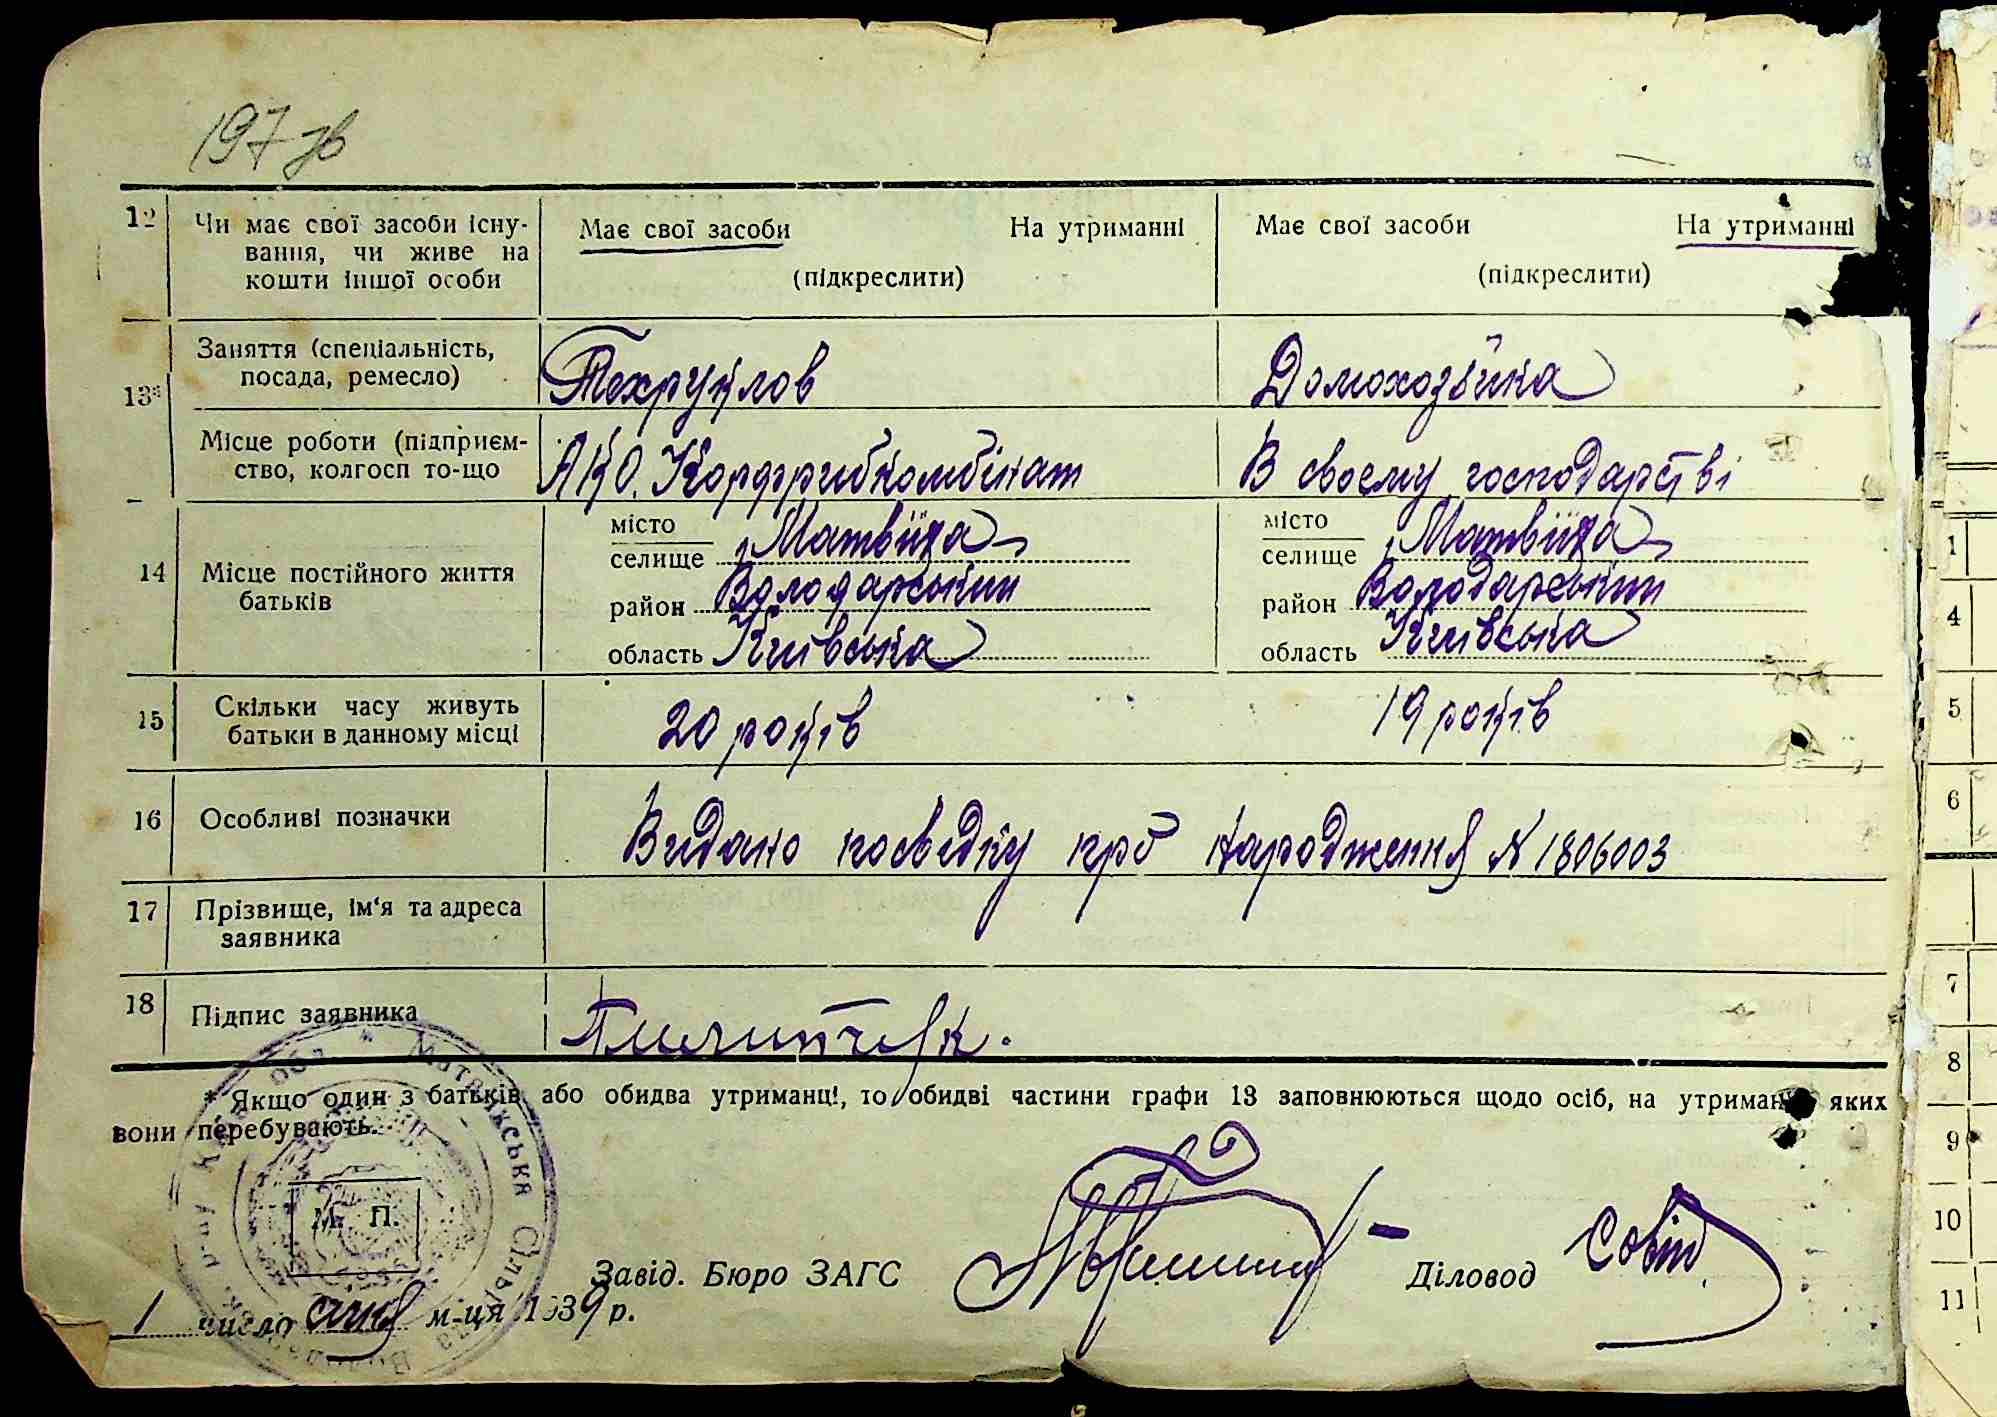 197 зв
12 Чи має свої засоби існу-
вання, чи живе на
кошти іншої особи
Має свої засоби На утриманні
(підкреслити)
Має свої засоби На утриманні
(підкреслити)
13* Заняття (спеціальність,
посада, ремесло)
Техруклов
Домохозяйка
Місце роботи (підприєм-
ство, колгосп то-що
АКО. Корфрибкомбінат
В своєму господарстві
14 Місце постійного життя
батьків
місто
селище Матвіїха
район Володарський
область Київська
місто
селище Матвіїха
район Володарський
область Київська
15 Скільки часу живуть
батьки в данному місці
20 років
19 років
16 Особливі позначки
Видано посвідку про народження № 1806003
17 Прізвище, ім'я та адреса
заявника
18 Підпис заявника
Пилипчук.
* Якщо один з батьків або обидва утриманці, то обидві частини графи 13 заповнюються щодо осіб, на утриман яких
вони перебувають.
М. П.
Завід. Бюро ЗАГС
Діловод
1 число січня м-ця 1939 р.
1
4
5
6
7
8
9
10
11